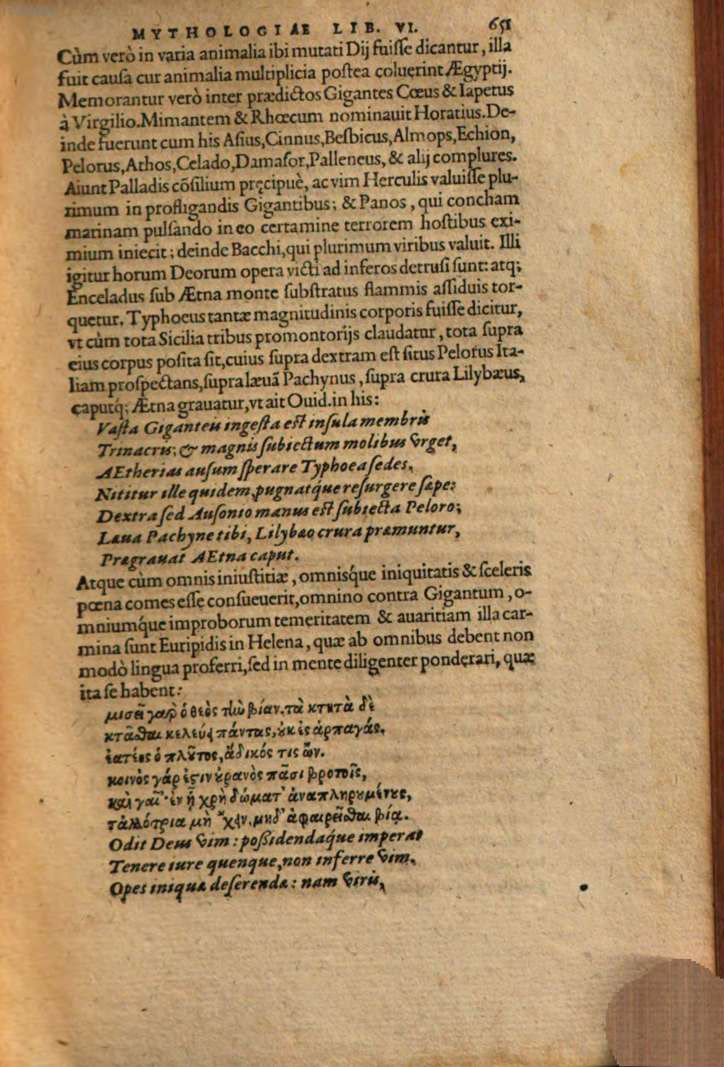 MYTHOLOGIAE LIB. VI. 651
Cùm verò in varia animalia ibi mutati Dij fuisse dicantur, illa
fuit causa cur animalia multiplicia postea coluerint Ægyptij.
Memorantur verò inter prædictos Gigantes Cœus & Iapetus
à Virgilio. Mimantem & Rhœcum nominauit Horatius. De-
inde fuerunt cum his Asius, Cinnus, Besbicus, Almops, Echion,
Pelorus, Athos, Celado, Damasor, Palleneus, & alij complures.
Aiunt Palladis cōsilium pręcipuè, ac vim Herculis valuisse plu-
rimum in profligandis Gigantibus; & Panos, qui concham
marinam pulsando in eo certamine terrorem hostibus exi-
mium iniecit; deinde Bacchi, qui plurimum viribus valuit. Illi
igitur horum Deorum opera victi ad inferos detrusi sunt: atq;
Enceladus sub Ætna monte substratus flammis assiduis tor-
quetur. Typhoeus tantæ magnitudinis corporis fuisse dicitur,
vt cùm tota Sicilia tribus promontorijs claudatur, tota supra
eius corpus posita sit, cuius supra dextram est situs Pelorus Ita-
liam prospectans, supra læuā Pachynus, supra crura Lilybæus,
caputq; Ætna grauatur, vt ait Ouid. in his:
Vasta Giganteu ingesta est insula membris
Trinacris; & magnis subiectum molibus vrget,
AEtherias ausum sperare Typhoea sedes.
Nititur ille quidem, pugnatque resurgere sæpe:
Dextra sed Ausonio manus est subiecta Peloro;
Læua Pachyne tibi, Lilybæo crura præmuntur,
Prægrauat AEtna caput.
Atque cùm omnis iniustitiæ, omnisque iniquitatis & sceleris
pœna comes esse consueuerit, omnino contra Gigantum, o-
mniumque improborum temeritatem & auaritiam illa car-
mina sunt Euripidis in Helena, quæ ab omnibus debent non
modò lingua proferri, sed in mente diligenter ponderari, quæ
ita se habent:
μισεῖ γὰρ ὁ θεὸς τὴν βίαν. τὰ κτητὰ δὲ
κτᾶσθαι κελεύει πάντας, οὐκ ἐς ἁρπαγάς.
ἐατέος ὁ πλοῦτος, ἄδικός τις ὤν.
κοινὸς γάρ ἐστιν οὐρανὸς πᾶσι βροτοῖς,
καὶ γαῖ· ἐν ᾗ χρὴ δώματ' ἀναπληρουμένους,
τἀλλότρια μὴ ἔχειν, μηδ' ἀφαιρεῖσθαι βίᾳ.
Odit Deus vim: possidendaque imperat
Tenere iure quenque, non inferre vim.
Opes iniqua deserenda: nam viris,